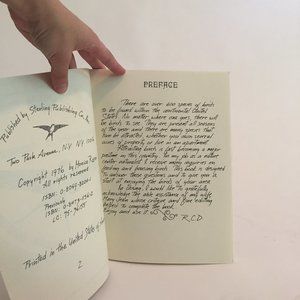 Published by Sterling Publishing Co., Inc.
Two Park Avenue, N.Y. N.Y. 10016
Copyright 1976 by
All rights reserved
ISBN:
Previously
ISBN:
LC: 75-
Printed in the United States of
2
PREFACE
There are over 600 species of birds
to be found within the continental United
States. No matter where one goes, there will
be birds to see. They are present all seasons
of the year and there are many species that
can be attracted, whether you own several
acres of property, or live in an apartment.
Attracting birds is fast becoming a major
pastime in this country. In my job as a nature
center naturalist I receive many inquiries on
feeding and housing birds. This book is designed
to answer these questions and to give you a
start in enjoying the birds of your area.
In closing, I would like to gratefully
acknowledge the able assistance of my wife,
Mary Jean whose critique and fine editing
helped to complete the book.
Enjoy and use it
R.C.D.